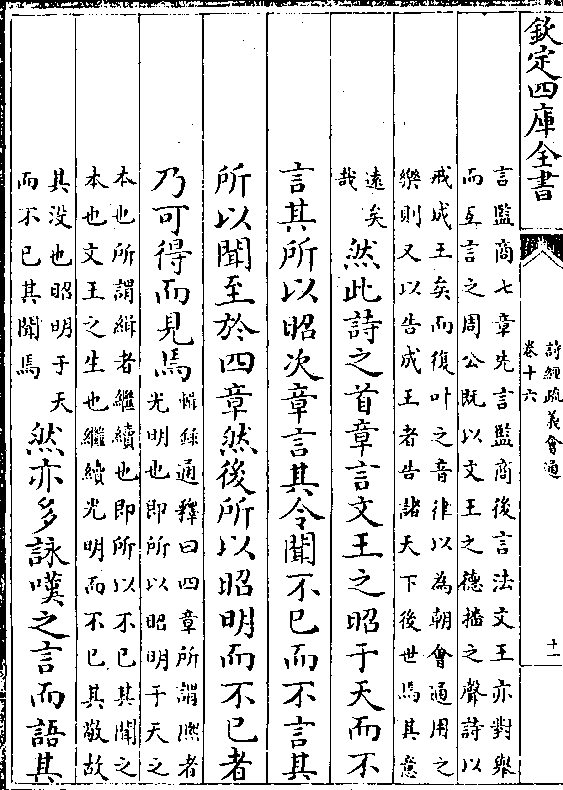 欽定四庫全書
詩經疏義會通
卷十六
十一
言監商七章先言監商後言法文王亦對舉
而互言之周公既以文王之德播之聲詩以
戒成王矣而復叶之音律以為朝會通用之
樂則又以告成王者告諸天下後世焉其意
遠矣
哉
然此詩之首章言文王之昭于天而不
言其所以昭次章言其令聞不已而不言其
所以聞至於四章然後所以昭明而不已者
乃可得而見焉
輯錄通釋曰四章所謂熈者
光明也即所以昭明于天之
本也所謂緝者繼續也即所以不已其聞之
本也文王之生也繼續光明而不已其敬故
其没也昭明于天
而不已其聞焉
然亦多詠嘆之言而語其